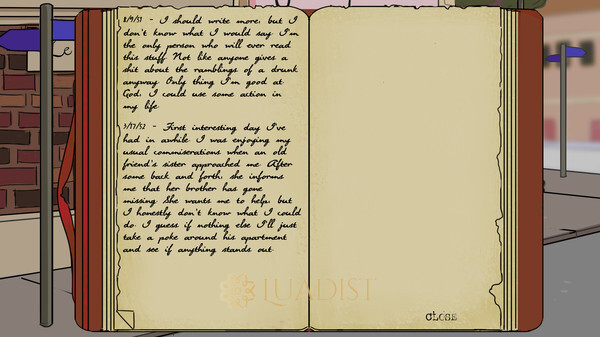 8/9/51 - I should write more, but I
don't know what I would say. I'm
the only person who will ever read
this stuff. Not like anyone gives a
shit about the ramblings of a drunk
anyway. Only thing I'm good at.
God, I could use some action in
my life.
3/17/52 - First interesting day I've
had in awhile. I was enjoying my
usual commiserations when an old
friend's sister approached me. After
some back and forth, she informs
me that her brother has gone
missing. She wants me to help, but
I honestly don't know what I could
do. I guess if nothing else I'll just
take a poke around his apartment
and see if anything stands out.
LUADIST
CLOSE